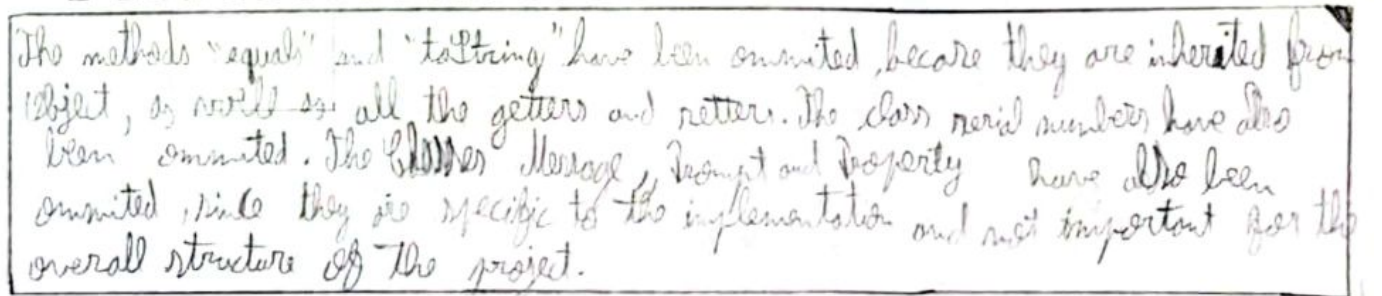 The methods "equals" and "toString" have been ommited, becase they are inherited from
Object, as well as all the getters and setters. The class serial numbers have also
been ommited. The Classes Message, Prompt and Property have also been
ommited, since they are specific to the implementation and not important for the
overall structure of the project.